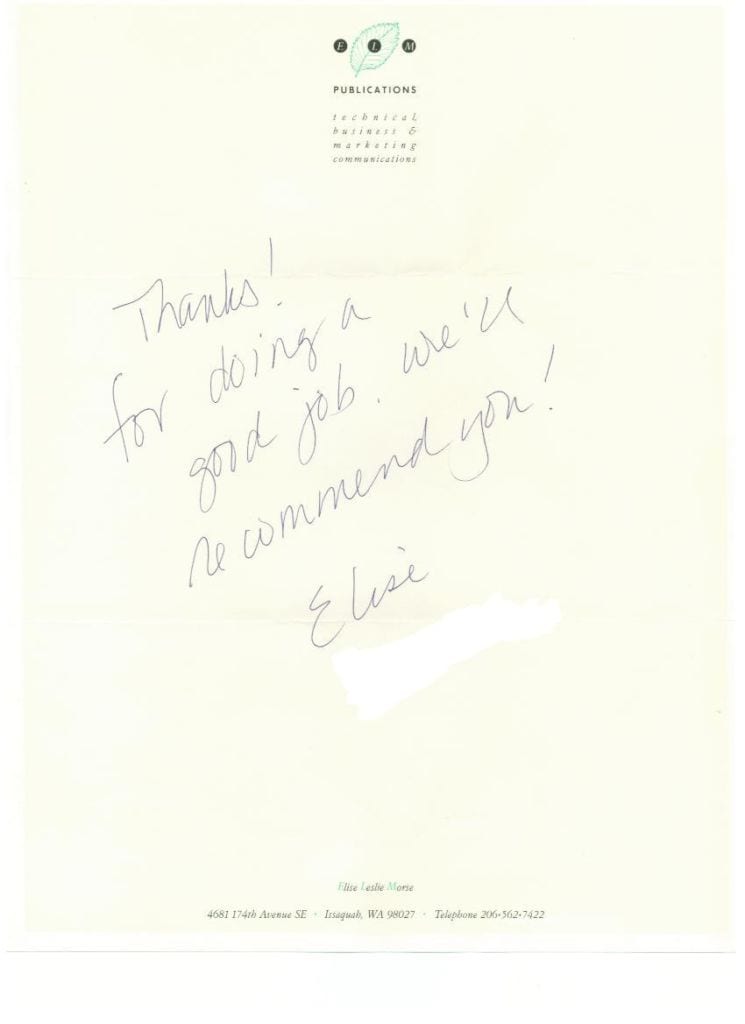 E L M
PUBLICATIONS
technical,
business &
marketing
communications
Thanks!
for doing a
good job. We'll
recommend you!
Elise
Elise Leslie Morse
4681 174th Avenue SE · Issaquah, WA 98027 · Telephone 206·562·7422